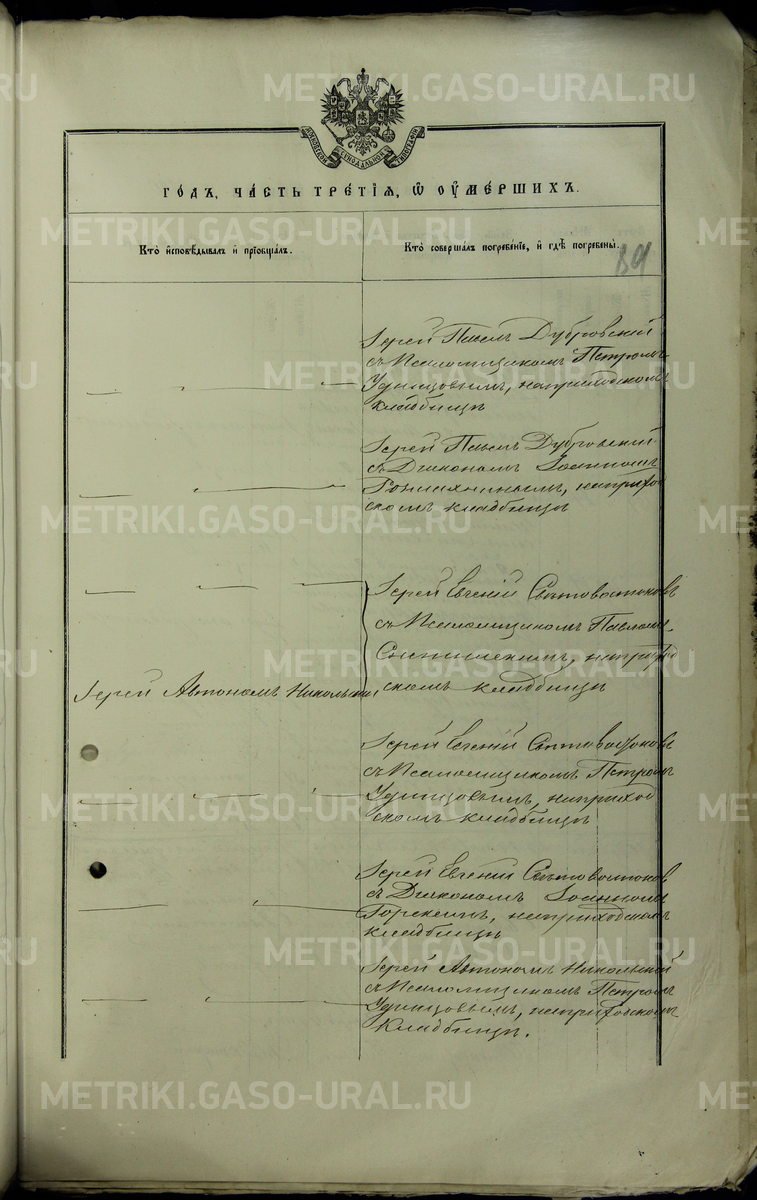 METRIKI.GASO-URAL.RU
МОСКОВСКОЙ СѴНОДАЛЬНОЙ ТИПОГРАФІИ
ГОДЪ, ЧАСТЬ ТРЕТІЯ, Ѡ ОУМЕРШИХЪ.
Кто исповѣдывалъ и прїобщалъ.
Кто совершалъ погребенїе, и гдѣ погребены.
89
Іерей Павелъ Дубровскій
съ Псаломщикомъ Петромъ
Удинцовымъ, на приходскомъ
кладбищѣ
Іерей Павелъ Дубровскій
съ Діакономъ Іоанномъ
на приход
скомъ кладбищѣ
Іерей Евгеній
съ Псаломщикомъ Павломъ
на приход
скомъ кладбищѣ
Іерей Автономъ Никольскій
Іерей Евгеній
съ Псаломщикомъ Петромъ
Удинцовымъ, на приход
скомъ кладбищѣ
Іерей Евгеній
съ Діакономъ Іоанномъ
Горскимъ, на приходскомъ
кладбищѣ
Іерей Автономъ Никольскій
съ Псаломщикомъ Петромъ
Удинцовымъ, на приходскомъ
кладбищѣ.
METRIKI.GASO-URAL.RU